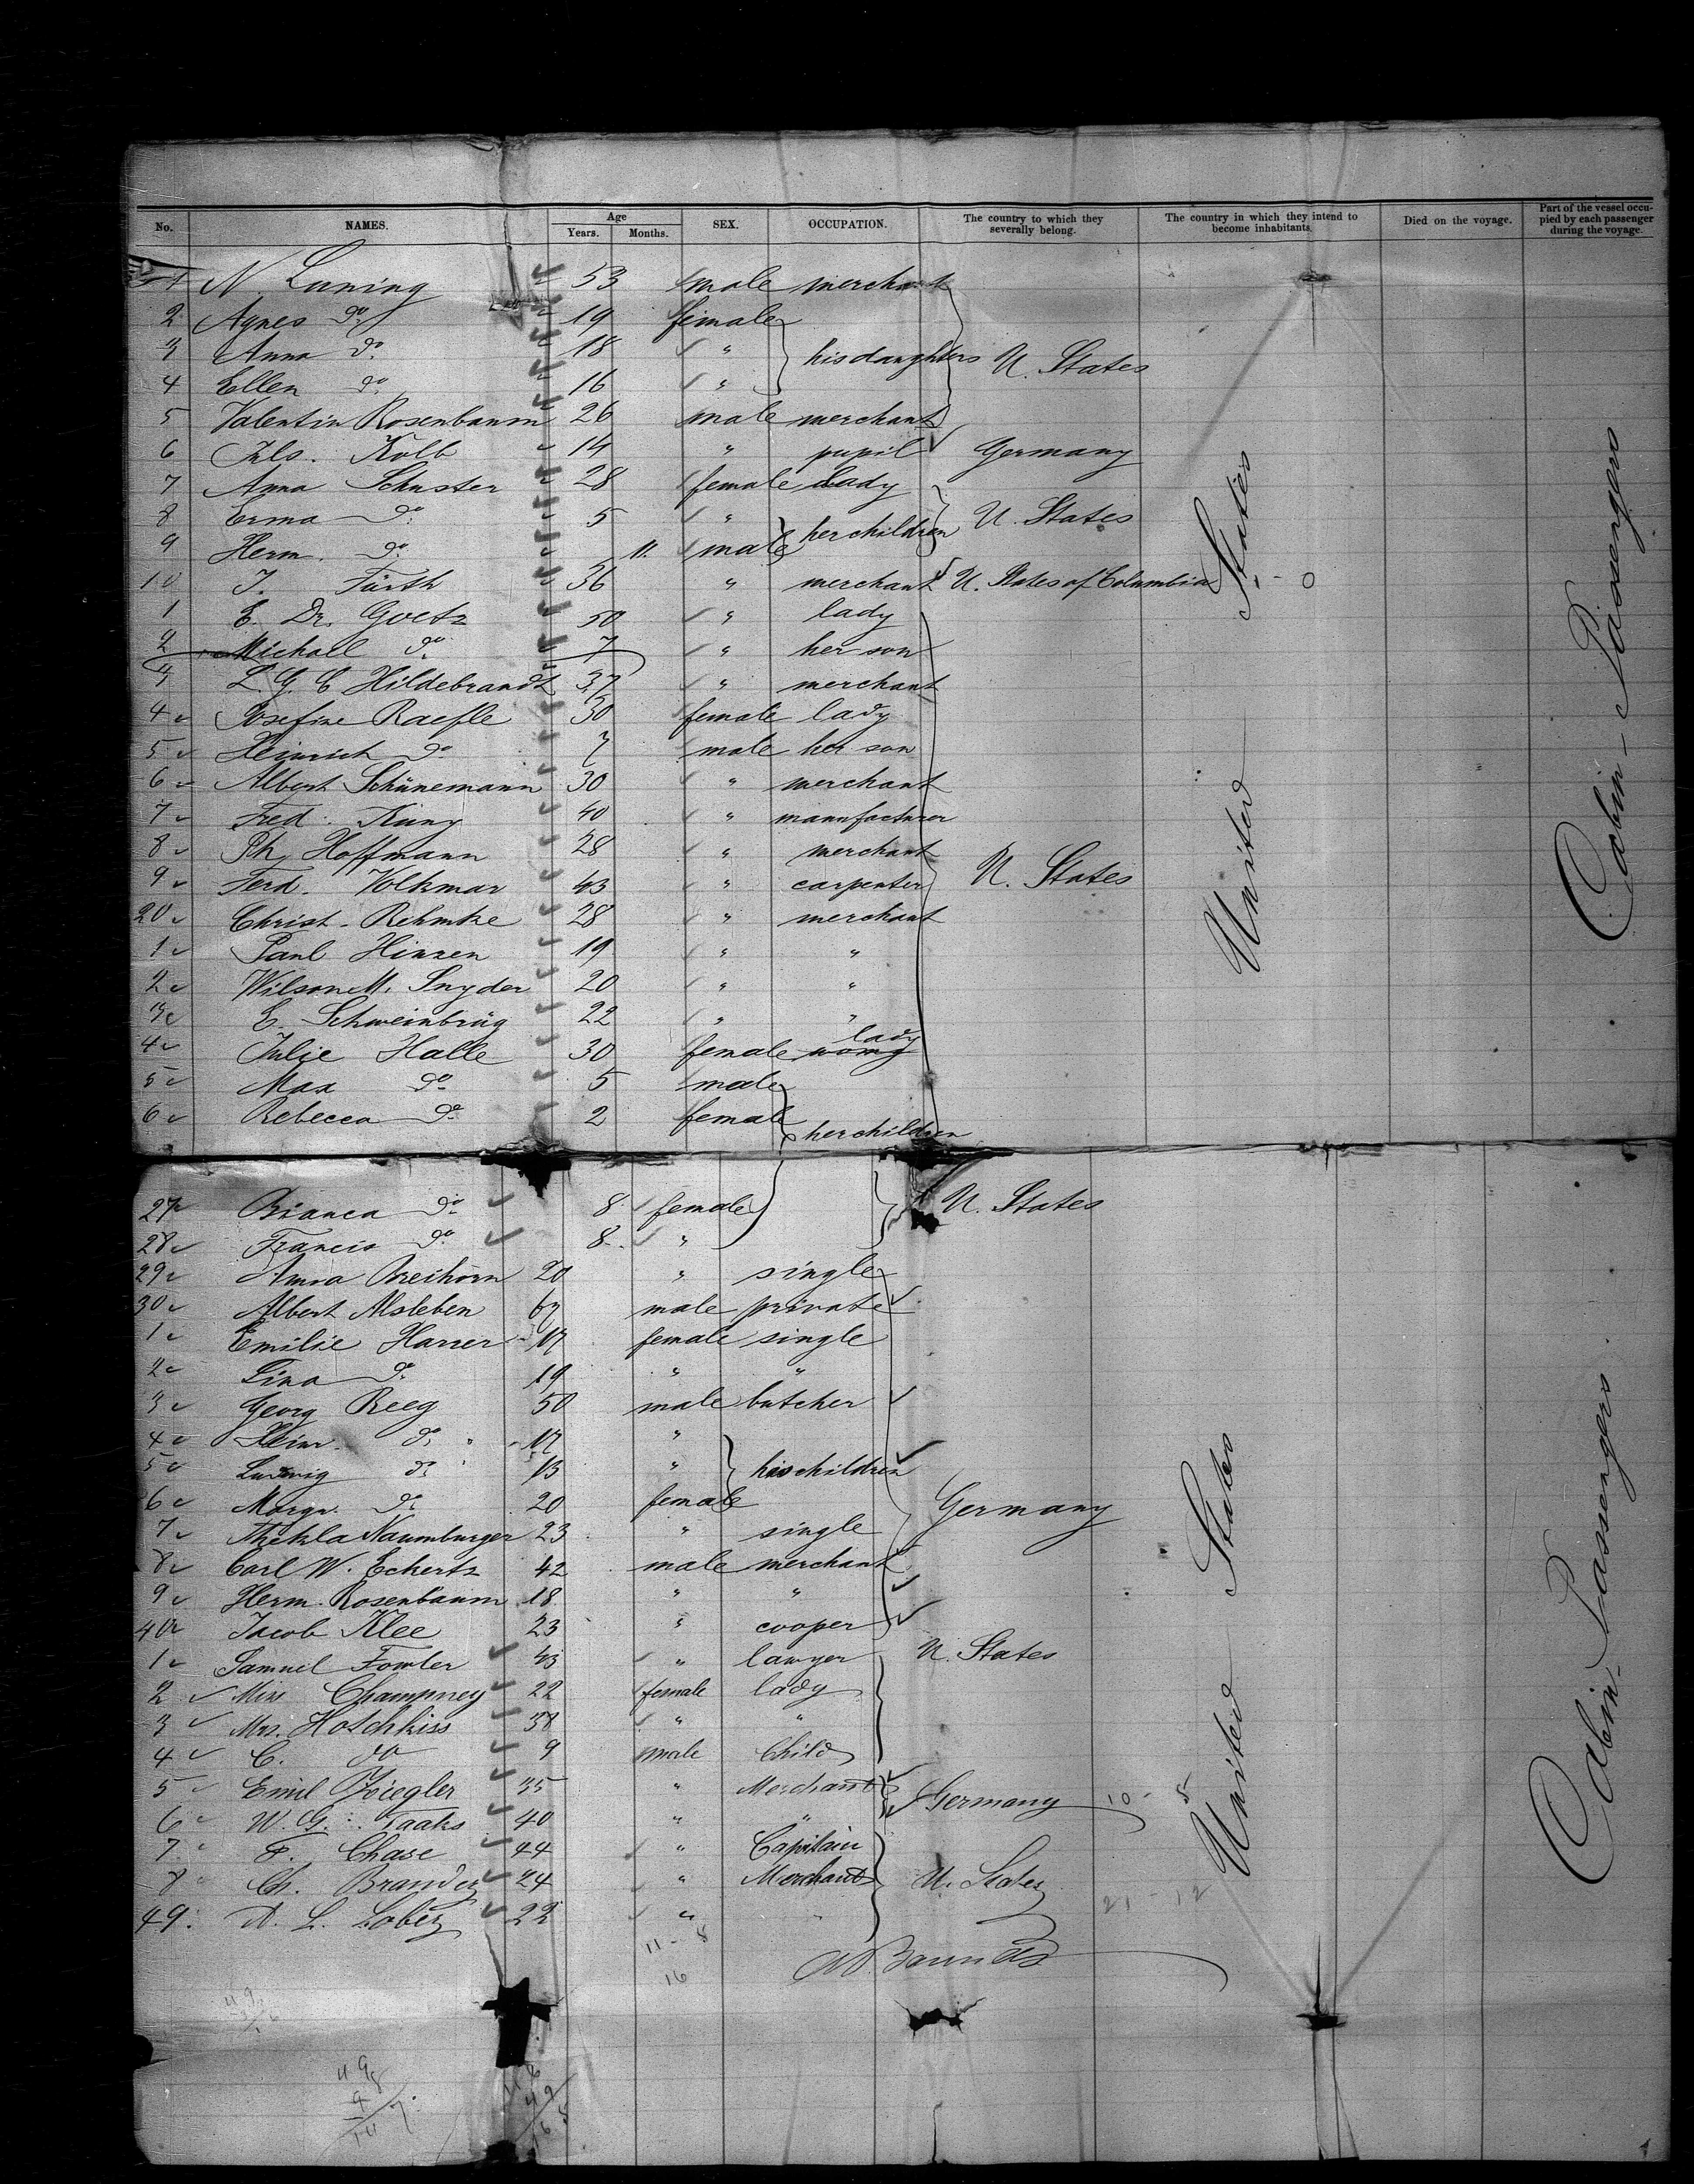 No. NAMES. Age Years. Months. SEX. OCCUPATION. The country to which they severally belong. The country in which they intend to become inhabitants. Died on the voyage. Part of the vessel occupied by each passenger during the voyage.
1 N. Luning 53 male merchant
2 Agnes do 19 female
3 Anna do 18 " his daughters U. States
4 Ellen do 16 "
5 Valentin Rosenbaum 26 male merchant
6 Chls. Kolb 14 " pupil Germany
7 Anna Schuster 28 female lady
8 Erma do 5 " her children U. States
9 Herm. do 11. male
10 J. Fürth 36 " merchant U. States of Columbia - 0
1 E. Dr. Goetz 50 " lady
2 Michael do 7 " her son
3 L. G. C Hildebrandt 37 " merchant
4 Josefine Raefle 30 female lady
5 Heinrich do 7 male her son
6 Albert Schünemann 30 " merchant
7 Fred. Küny 40 " manufacturer
8 Ph. Hoffmann 28 " merchant
9 Ferd. Volkmar 43 " carpenter U. States
20 Christ. Rehmke 28 " merchant
1 Paul Hinzen 19 " "
2 Wilson M. Snyder 20 " "
3 E. Schweinbrüg 22 " "
4 Julie Halle 30 female lady
5 Max do 5 male
6 Rebecca do 2 female her children
United States
Cabin-Passengers
27 Bianca do 8 female U. States
28 Francis do 8. "
29 Anna Breihorn 20 " single
30 Albert Alsleben 67 male private
1 Emilie Harrer 17 female single
2 Lina do 19 " "
3 Georg Reeg 50 male butcher
4 Heinr. do 17 "
5 Ludwig do 13 " his children
6 Margr. do 20 female Germany
7 Thekla Naumburger 23 " single
8 Carl W. Eckertz 42 male merchant
9 Herm. Rosenbaum 18 " "
40 Jacob Klee 23 " cooper
1 Samuel Fowler 43 " lawyer U. States
2 Miss Champney 22 female lady
3 Mrs. Hotchkiss 38 " "
4 C. do 9 male Child
5 Emil Ziegler 35 " Merchant Germany 10 - 5
6 W. G. Taaks 40 " "
7 F. Chase 44 " Capitain
8 Ch. Brander 24 " Merchant U. States
21 - 12
49. A. L. Lobez 22 " "
11 - 8
16
United States
Cabin-Passengers.